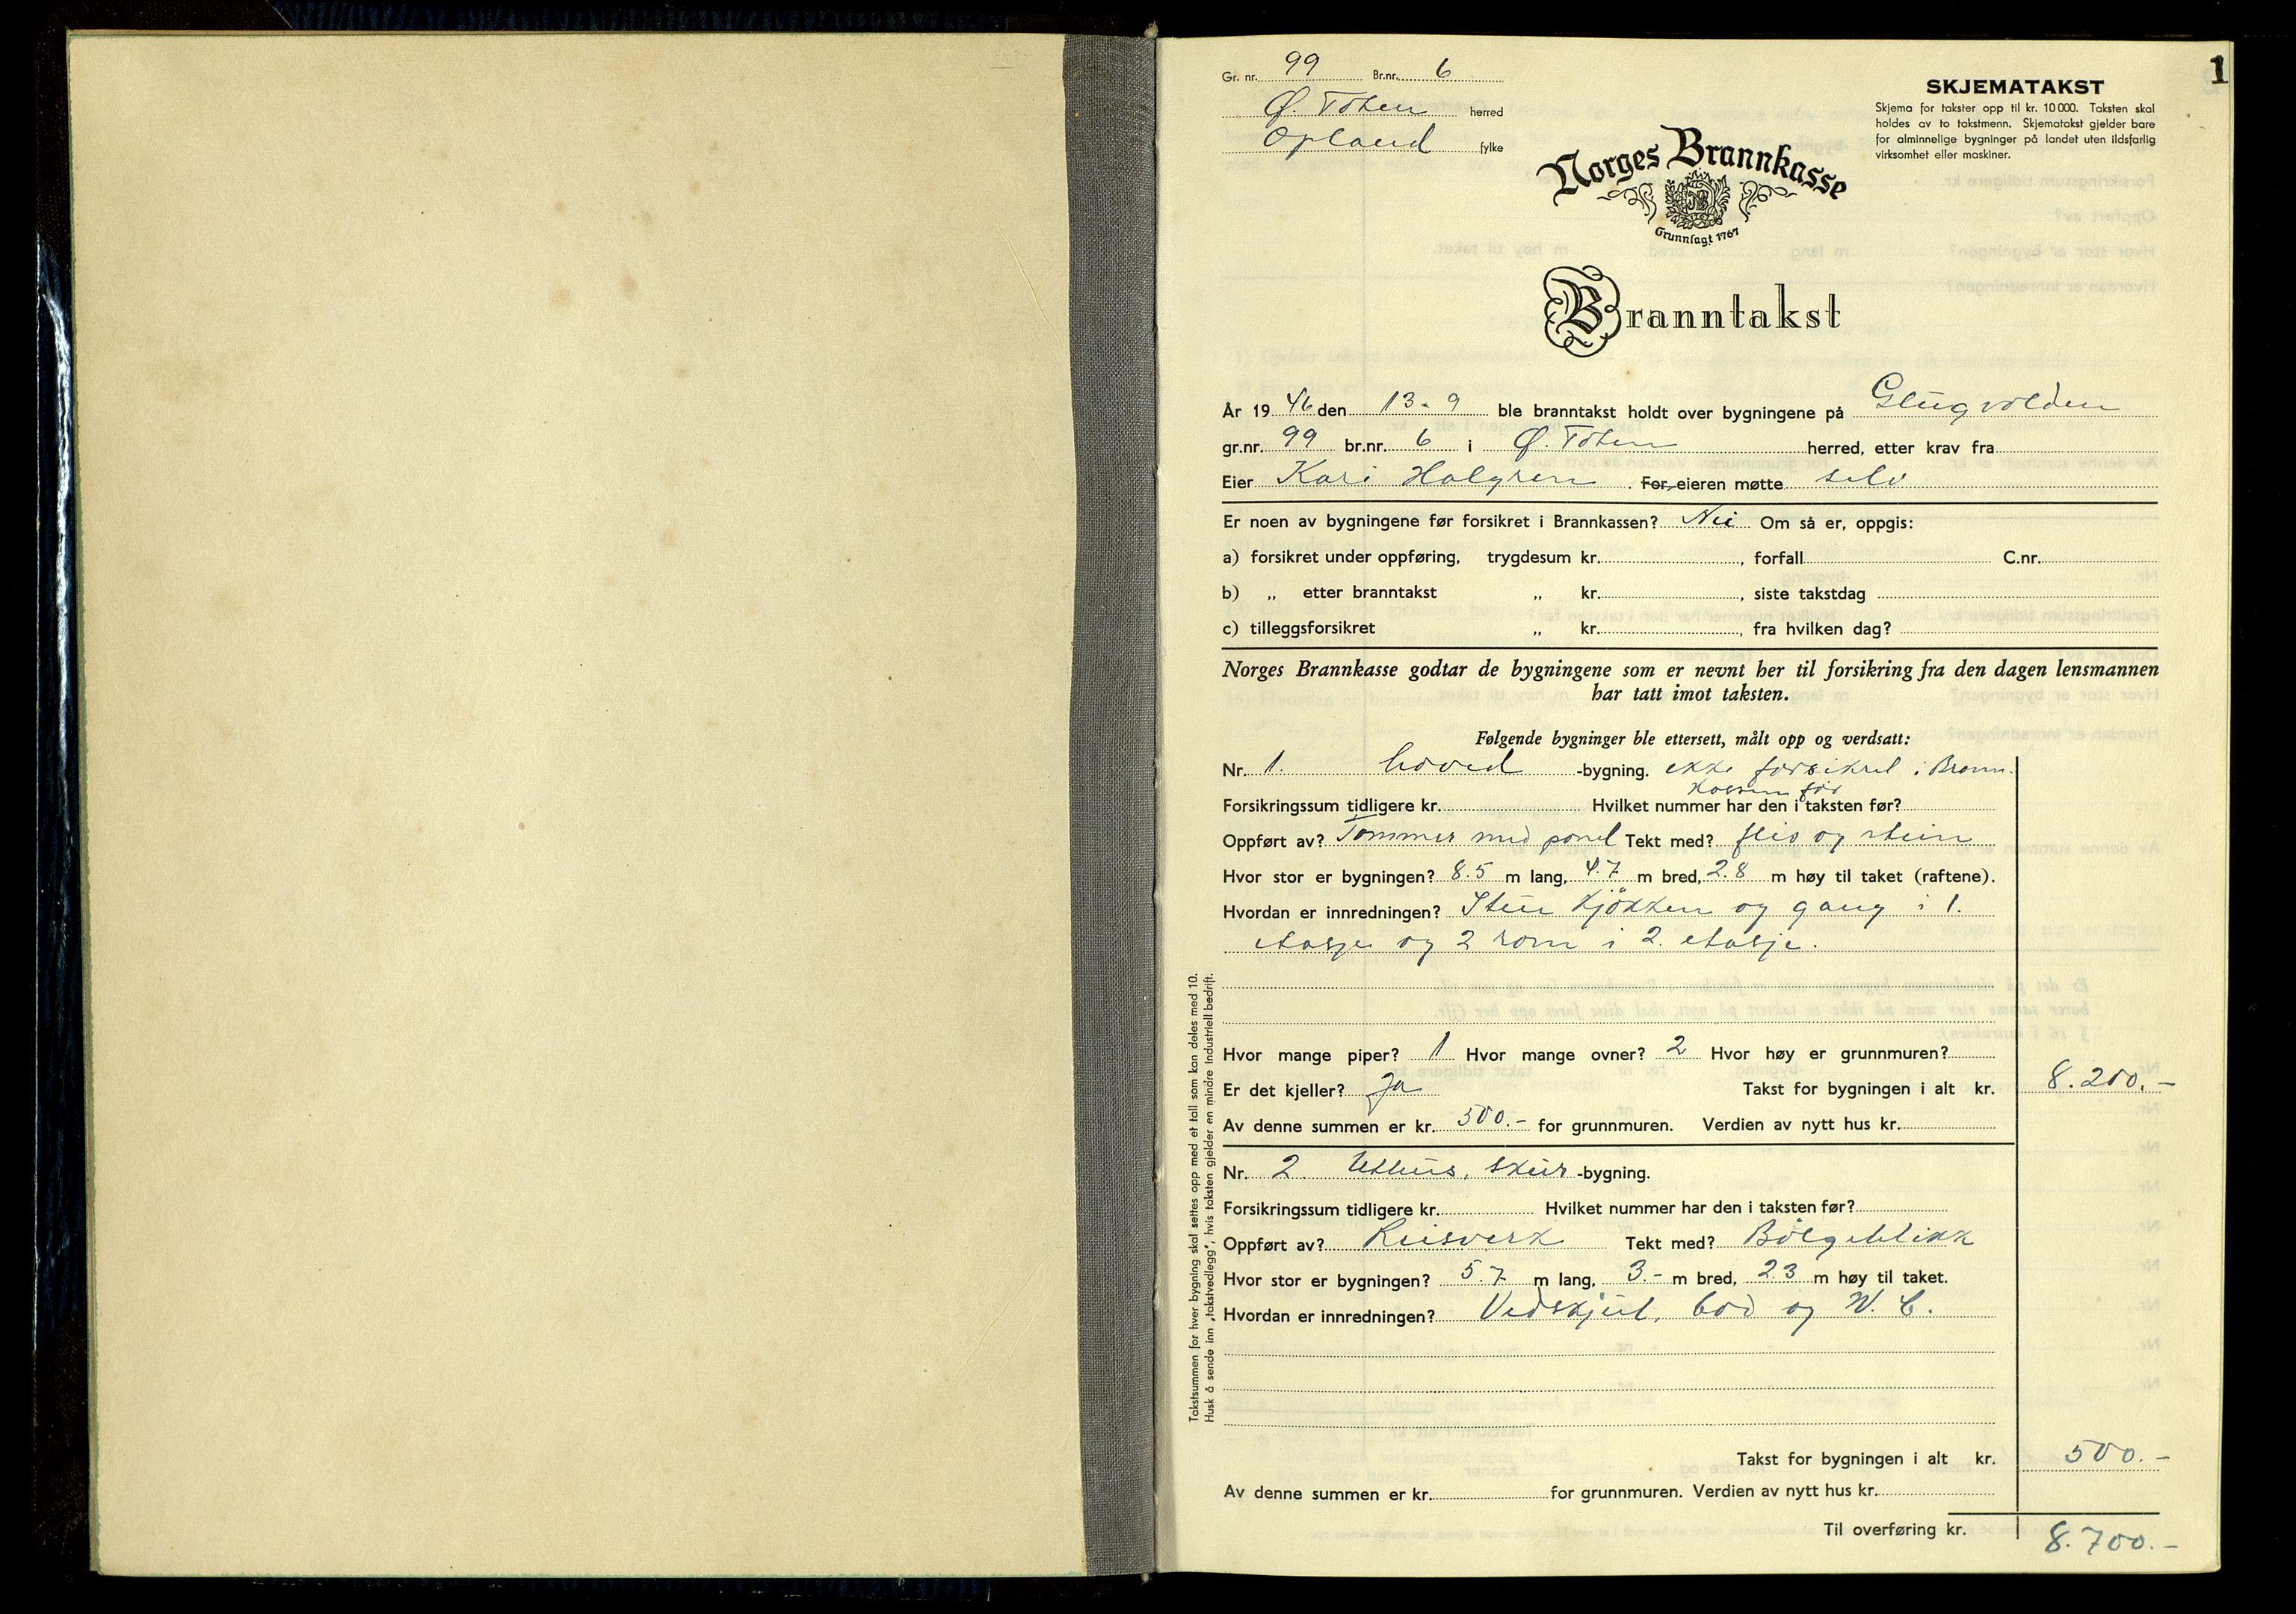 1
Gr. nr. 99 Br.nr. 6
Ø. Toten herred
Opland fylke
SKJEMATAKST
Skjema for takster opp til kr. 10 000. Taksten skal
holdes av to takstmenn. Skjematakst gjelder bare
for alminnelige bygninger på landet uten ildsfarlig
virksomhet eller maskiner.
Norges Brannkasse
NB
Grunnlagt 1767
Branntakst
År 19 46 den 13-9 ble branntakst holdt over bygningene på Glugvolden
gr.nr. 99 br.nr. 6 i Ø. Toten herred, etter krav fra
Eier Kari Holgren . For eieren møtte selv
Er noen av bygningene før forsikret i Brannkassen? Nei Om så er, oppgis:
a) forsikret under oppføring, trygdesum kr. , forfall C.nr.
b) „ etter branntakst „ kr. , siste takstdag
c) tilleggsforsikret „ kr. , fra hvilken dag?
Norges Brannkasse godtar de bygningene som er nevnt her til forsikring fra den dagen lensmannen
har tatt imot taksten.
Følgende bygninger ble ettersett, målt opp og verdsatt:
Nr. 1. hoved -bygning. ekke forsikret i Brann-
kassen før
Forsikringssum tidligere kr. Hvilket nummer har den i taksten før?
Oppført av? Tømmer med panel Tekt med? flis og stein
Hvor stor er bygningen? 8.5 m lang, 4.7 m bred, 2.8 m høy til taket (raftene).
Hvordan er innredningen? Stue kjökken og gang i 1.
etasje og 2 rom i 2. etasje.
Hvor mange piper? 1 Hvor mange ovner? 2 Hvor høy er grunnmuren?
Er det kjeller? Ja Takst for bygningen i alt kr. 8.200.-
Av denne summen er kr. 500.- for grunnmuren. Verdien av nytt hus kr.
Nr. 2 Uthus, skur -bygning.
Forsikringssum tidligere kr. Hvilket nummer har den i taksten før?
Oppført av? Reisverk Tekt med? Bölgeblikk
Hvor stor er bygningen? 5.7 m lang, 3.- m bred, 2.3 m høy til taket.
Hvordan er innredningen? Vedskjul, bod og W.C.
Takst for bygningen i alt kr. 500.-
Av denne summen er kr. for grunnmuren. Verdien av nytt hus kr.
Til overføring kr. 8.700.-
Takstsummen for hver bygning skal settes opp med et tall som kan deles med 10.
Husk å sende inn „takstvedlegg", hvis taksten gjelder en mindre industriell bedrift.